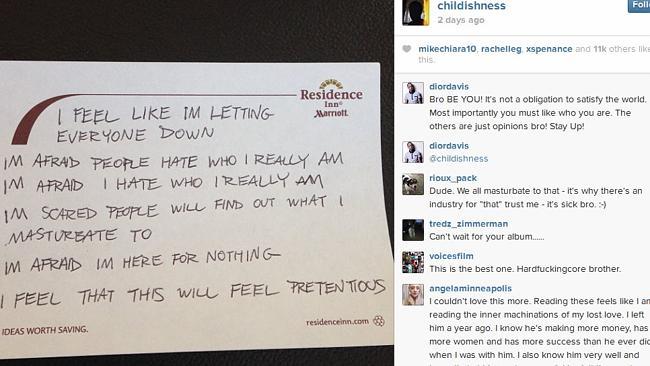 I FEEL LIKE IM LETTING
EVERYONE DOWN
IM AFRAID PEOPLE HATE WHO I REALLY AM
IM AFRAID I HATE WHO I REALLY AM
IM SCARED PEOPLE WILL FIND OUT WHAT I
MASTURBATE TO
IM AFRAID IM HERE FOR NOTHING
I FEEL THAT THIS WILL FEEL PRETENTIOUS
Residence
Inn®
Marriott
IDEAS WORTH SAVING.
residenceinn.com
childishness
2 days ago
Follo
mikechiara10, rachelleg, xspenance and 11k others like
this.
diordavis
Bro BE YOU! It's not a obligation to satisfy the world.
Most importantly you must like who you are. The
others are just opinions bro! Stay Up!
diordavis
@childishness
rioux_pack
Dude. We all masturbate to that - it's why there's an
industry for "that" trust me - it's sick bro. :-)
tredz_zimmerman
Can't wait for your album......
voicesfilm
This is the best one. Hardfuckingcore brother.
angelaminneapolis
I couldn't love this more. Reading these feels like I am
reading the inner machinations of my lost love. I left
him a year ago. I know he's making more money, has
more women and has more success than he ever did
when I was with him. I also know him very well and